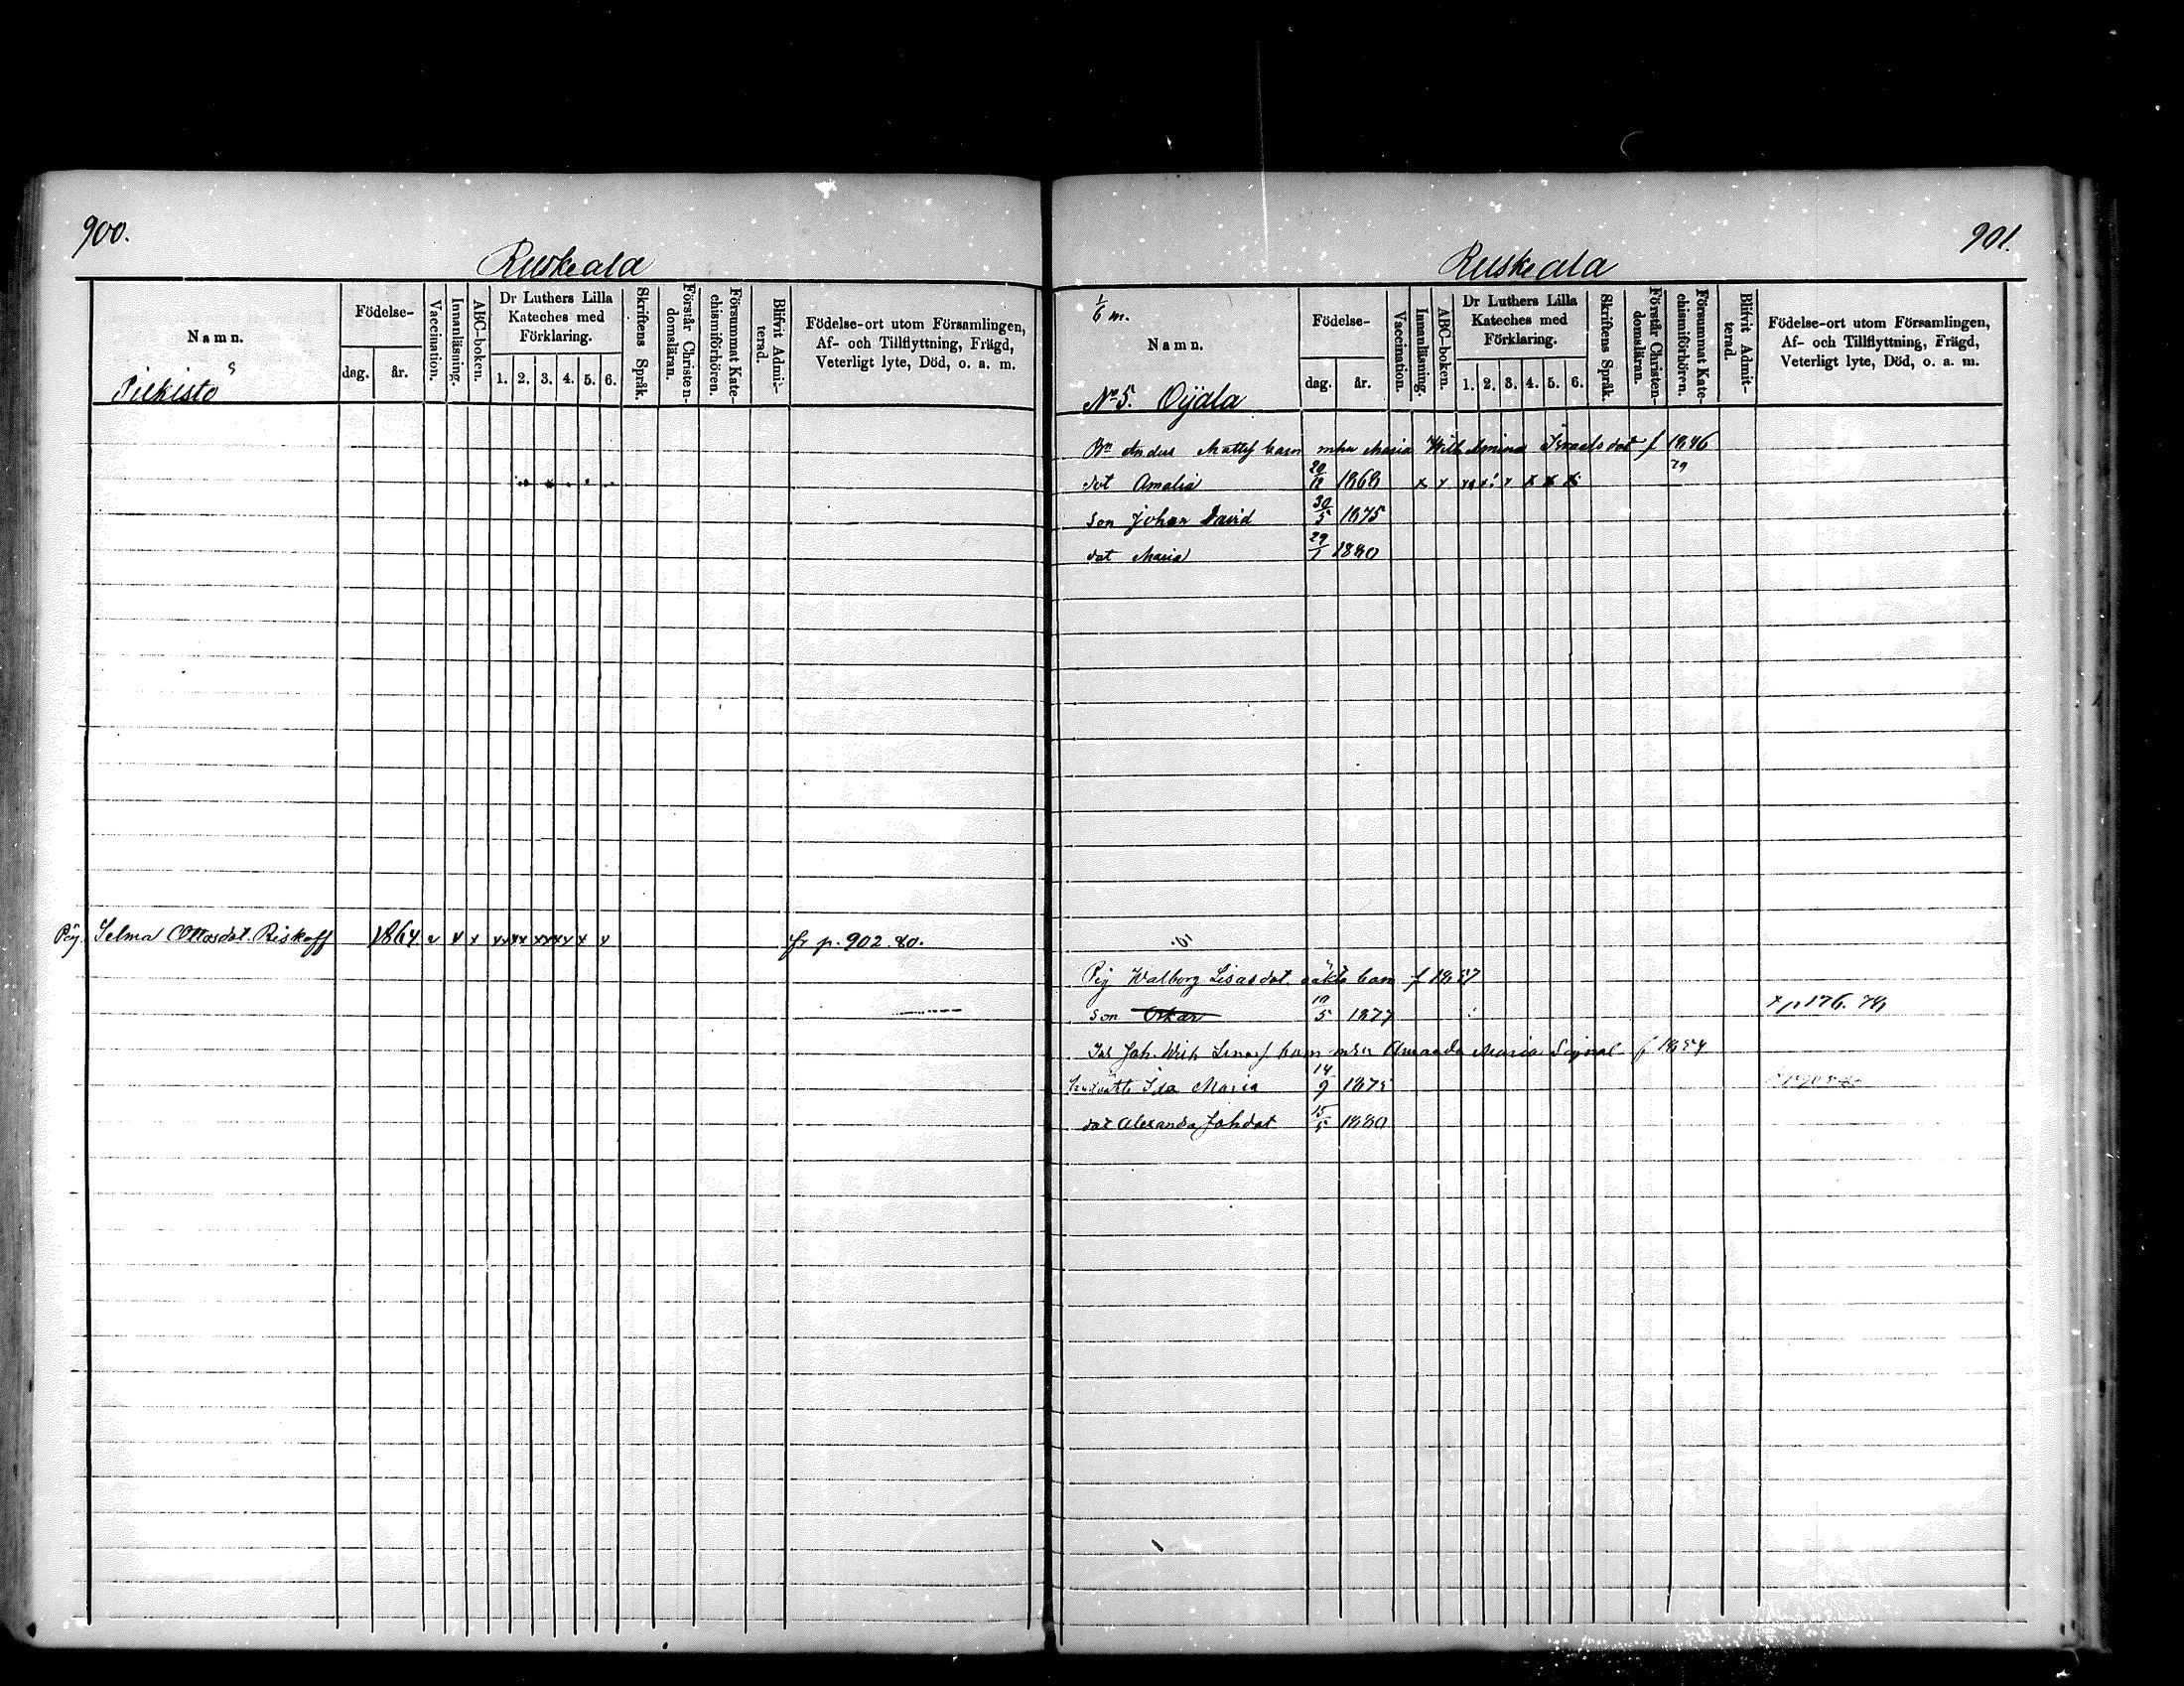 900.
Ruskeala
Namn.
Födelse-
dag. år.
Vaccination.
Innanläsning.
ABC-boken.
Dr Luthers Lilla Kateches med Förklaring.
1. 2. 3. 4. 5. 6.
Skriftens Språk.
Förstår Christendomsläran.
Försummat Katechismiförhören.
Blifvit Admitterad.
Födelse-ort utom Församlingen,
Af- och Tillflyttning, Frägd,
Veterligt lyte, Död, o. a. m.
Pig. Selma Ottosdot. Riskoff 1864 v x x xx xx xx xx x x fr p. 902 80.
901.
Ruskeala
1/6 m.
Namn.
Födelse-
dag. år.
Vaccination.
Innanläsning.
ABC-boken.
Dr Luthers Lilla Kateches med Förklaring.
1. 2. 3. 4. 5. 6.
Skriftens Språk.
Förstår Christendomsläran.
Försummat Katechismiförhören.
Blifvit Admitterad.
Födelse-ort utom Församlingen,
Af- och Tillflyttning, Frägd,
Veterligt lyte, Död, o. a. m.
No 5. Oijala
Bn Anders Mattss barn mhu Maria Wilhelmina Israelsdot f 1846
dot Amalia 1868 x x x x x x x x 79
son Johan David 30/5 1875
dot Maria 29/1 1880
Pig Walborg Lisasdot. oäkta barn f 1857
son Oskar 10/5 1877 p 176. 78
Joh. barn Amanda Maria f 1854
Ida Maria 14/9 1875
dot Alexandra Johdot 15/5 1880